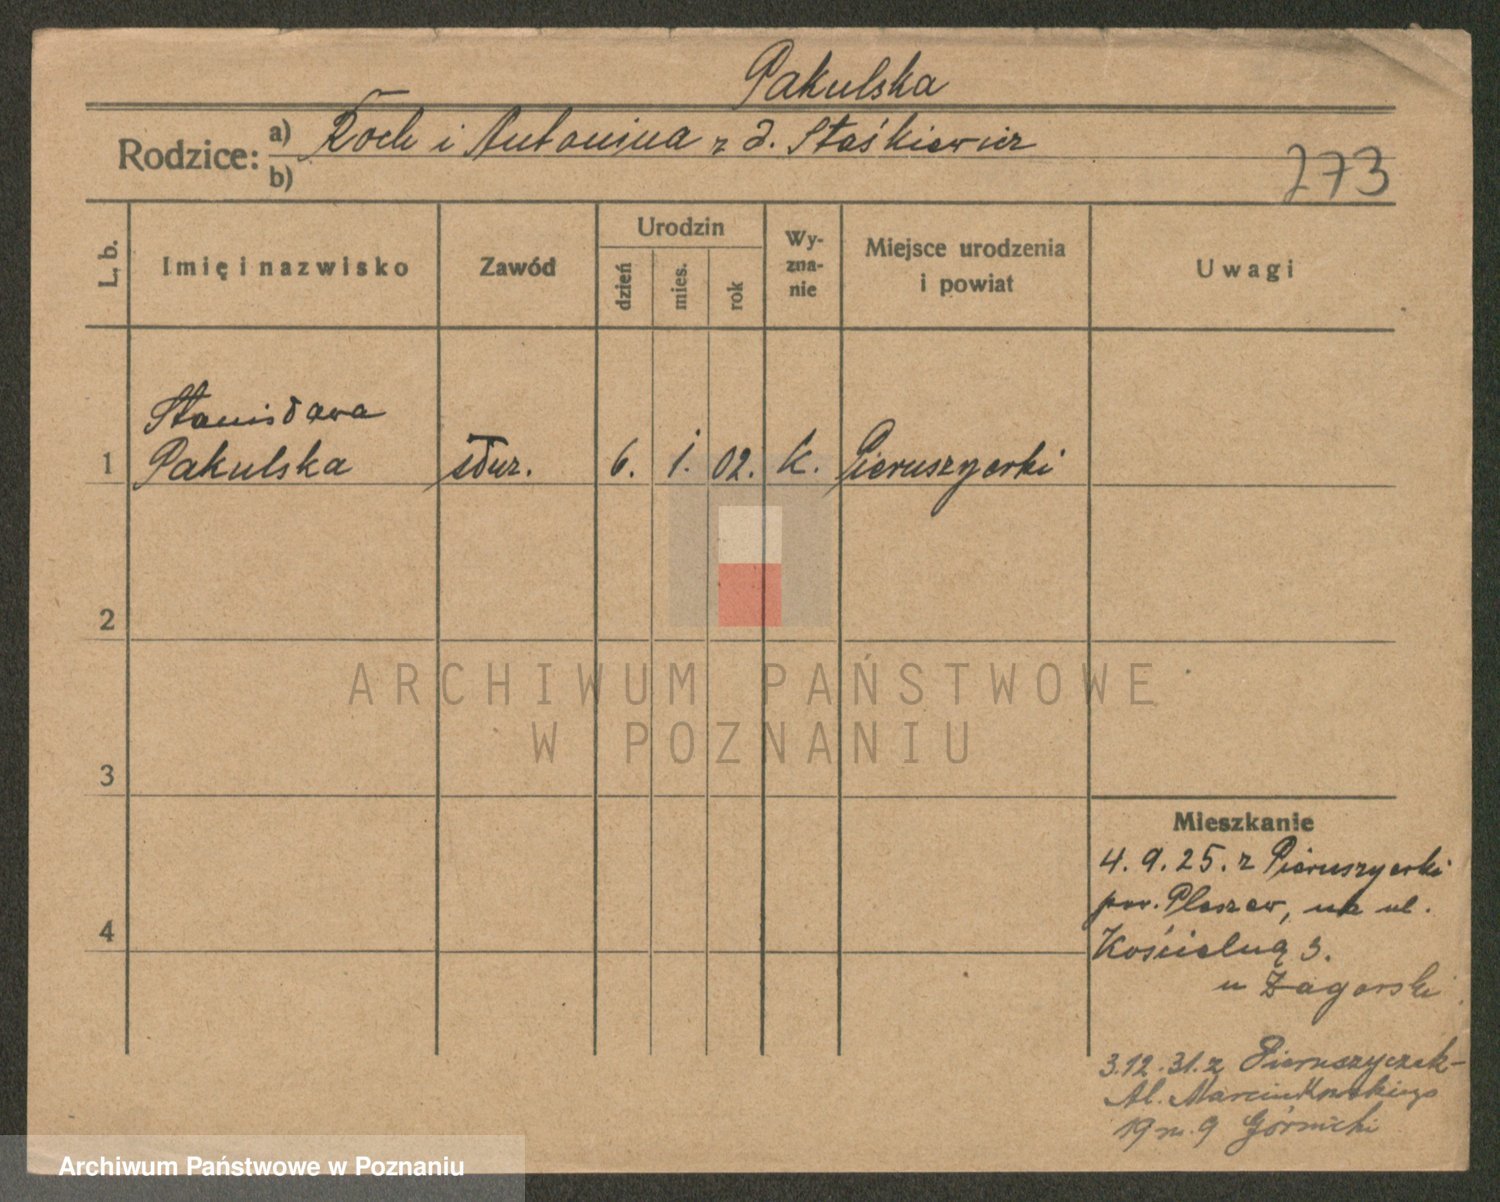 Pakulska
Rodzice: a) Roch i Antonina z d. Staśkiewicz
b)
273
L. b.
Imię i nazwisko
Zawód
Urodzin
dzień
mies.
rok
Wy-
zna-
nie
Miejsce urodzenia
i powiat
Uwagi
Stanisława
1 Pakulska służ. 6. 1. 02. K. Pieruszyczki
2
3
4
Mieszkanie
4. 9. 25. z Pieruszyczki
pow. Pleszew, na ul.
Kościelną 3.
u Zagorski
3.12.31. z Pieruszyczek-
Al. Marcinkowskiego
19 m. 9 Górnicki
ARCHIWUM PAŃSTWOWE
W POZNANIU
Archiwum Państwowe w Poznaniu